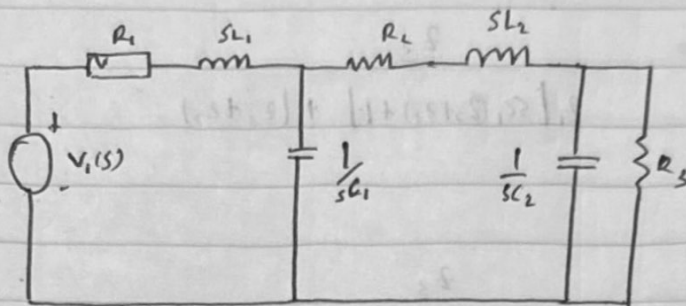 R₁ SL₁ R₂ SL₂
+
V₁(S)
-
1/SC₁
1/SC₂
R₃